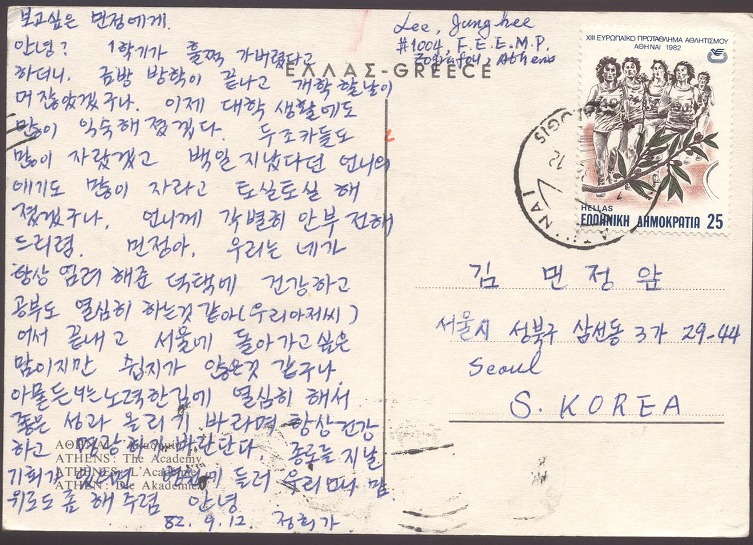 보고싶은 민정에게.
안녕? 1학기가 훌쩍 가버렸다고
하더니. 금방 방학이 끝나고 개학할날이
머잖았겠구나. 이제 대학 생활에도
많이 익숙해 졌겠다. 두조카들도
많이 자랐겠고 백일 지났다던 언니의
애기도 많이 자라고 토실토실 해
졌겠구나. 언니께 각별히 안부 전해
드리렴. 민정아, 우리는 네가
항상 염려 해준 덕택에 건강하고
공부도 열심히 하는것 같아(우리아저씨)
어서 끝내고 서울에 돌아가고싶은
맘이지만 쉽지가 않은것 같구나
아뭏든 너는 노력한김에 열심히 해서
좋은 성과 올리기 바라며 항상 건강
하고 바란단다 종로를 지날
기회가 들러 우리 맘
위로도 좀 해 주렴 안녕
82. 9. 12. 정희가
ΕΛΛΑΣ-GREECE
ATHENS: The Academy
ATHENES: L'Academie
ATHEN: Die Akademie
Lee, Jung hee
#1004, F.E.E.M.P.
Zografou, Athens
XIII ΕΥΡΩΠΑΪΚΟ ΠΡΩΤΑΘΛΗΜΑ ΑΘΛΗΤΙΣΜΟΥ
ΑΘΗΝΑΙ 1982
HELLAS
ΕΛΛΗΝΙΚΗ ΔΗΜΟΚΡΑΤΙΑ 25
김 민정 앞
서울시 성북구 삼선동 3가 29-44
Seoul
S. KOREA